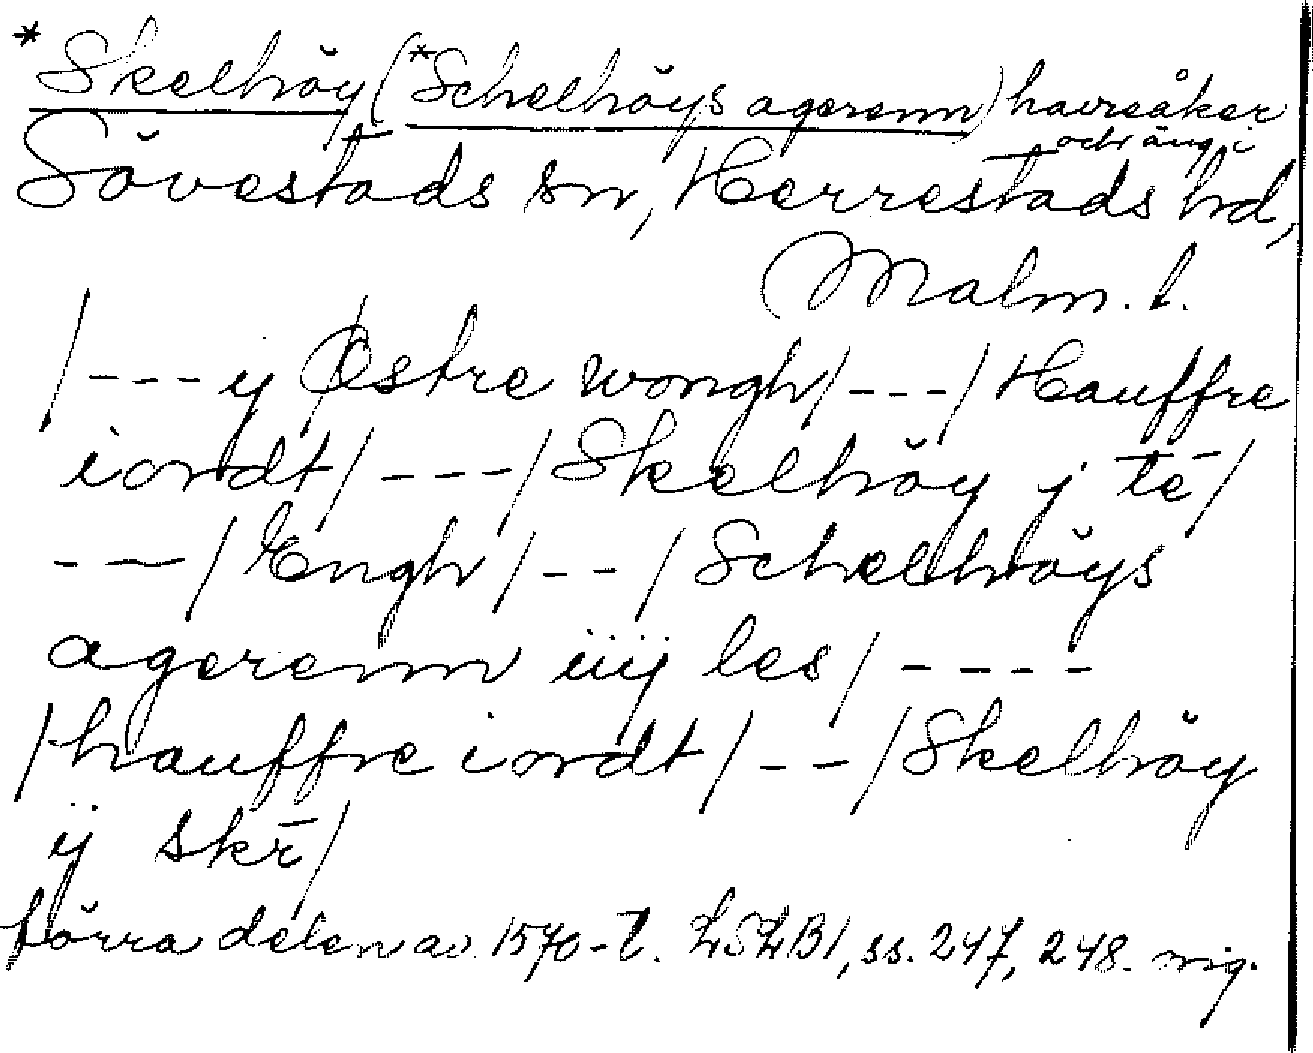 *Skelhöy (*Schelhöys agerenn) havreåker
och äng i
Sövestads sn, Herrestads hd,
Malm. l.
/---y Østre wongh/---/Hauffre
iordt/---/Skelhöy j tē/
---/Engh/--/Schelhöys
agerenn iiij les/----
/hauffre iordt/--/Skelhöy
ij skr̄/
förra delen av 1570-t. LSLB1, ss. 247, 248. nig.